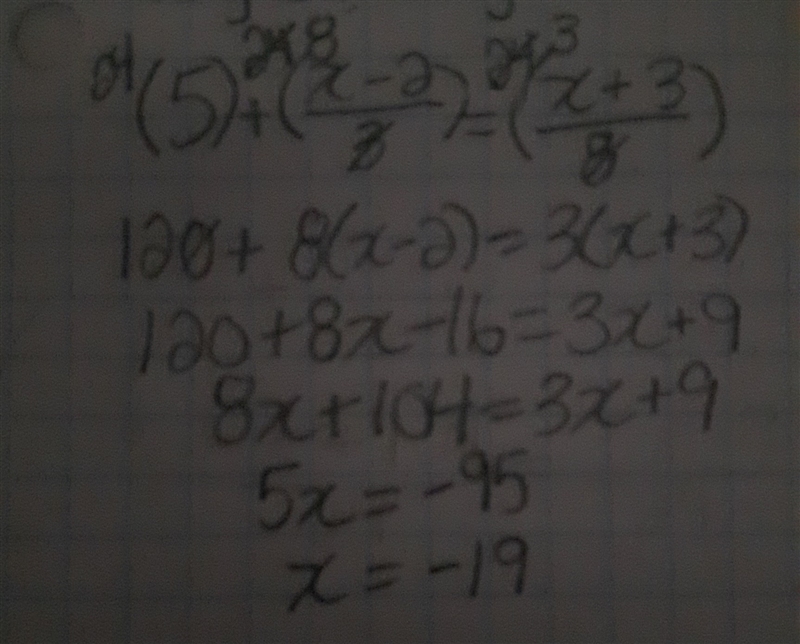 24(5) + 24 8 (x-2/3) = 24 3 (x+3/8)
120 + 8(x-2) = 3(x+3)
120+8x-16=3x+9
8x+104=3x+9
5x=-95
x=-19